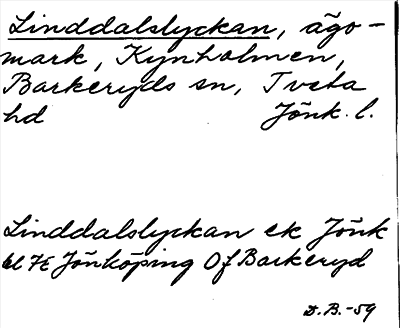 Linddalslyckan, ägo-
mark, Kynholmen,
Barkeryds sn, Tveta
hd Jönk. l.
Linddalslyckan ek Jönk
bl 7E Jönköping Of Barkeryd
D.B.-59